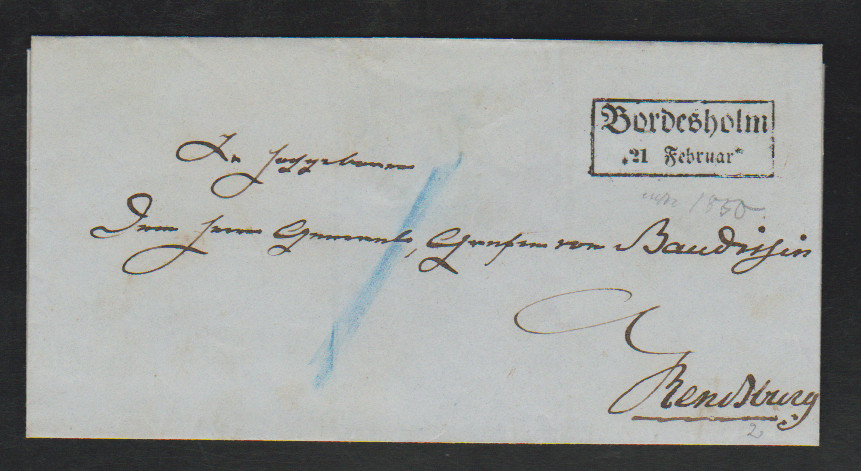 Bordesholm
*21 Februar*
1850.
Dem Herrn General, Grafen von Baudissin
Rendsburg
2